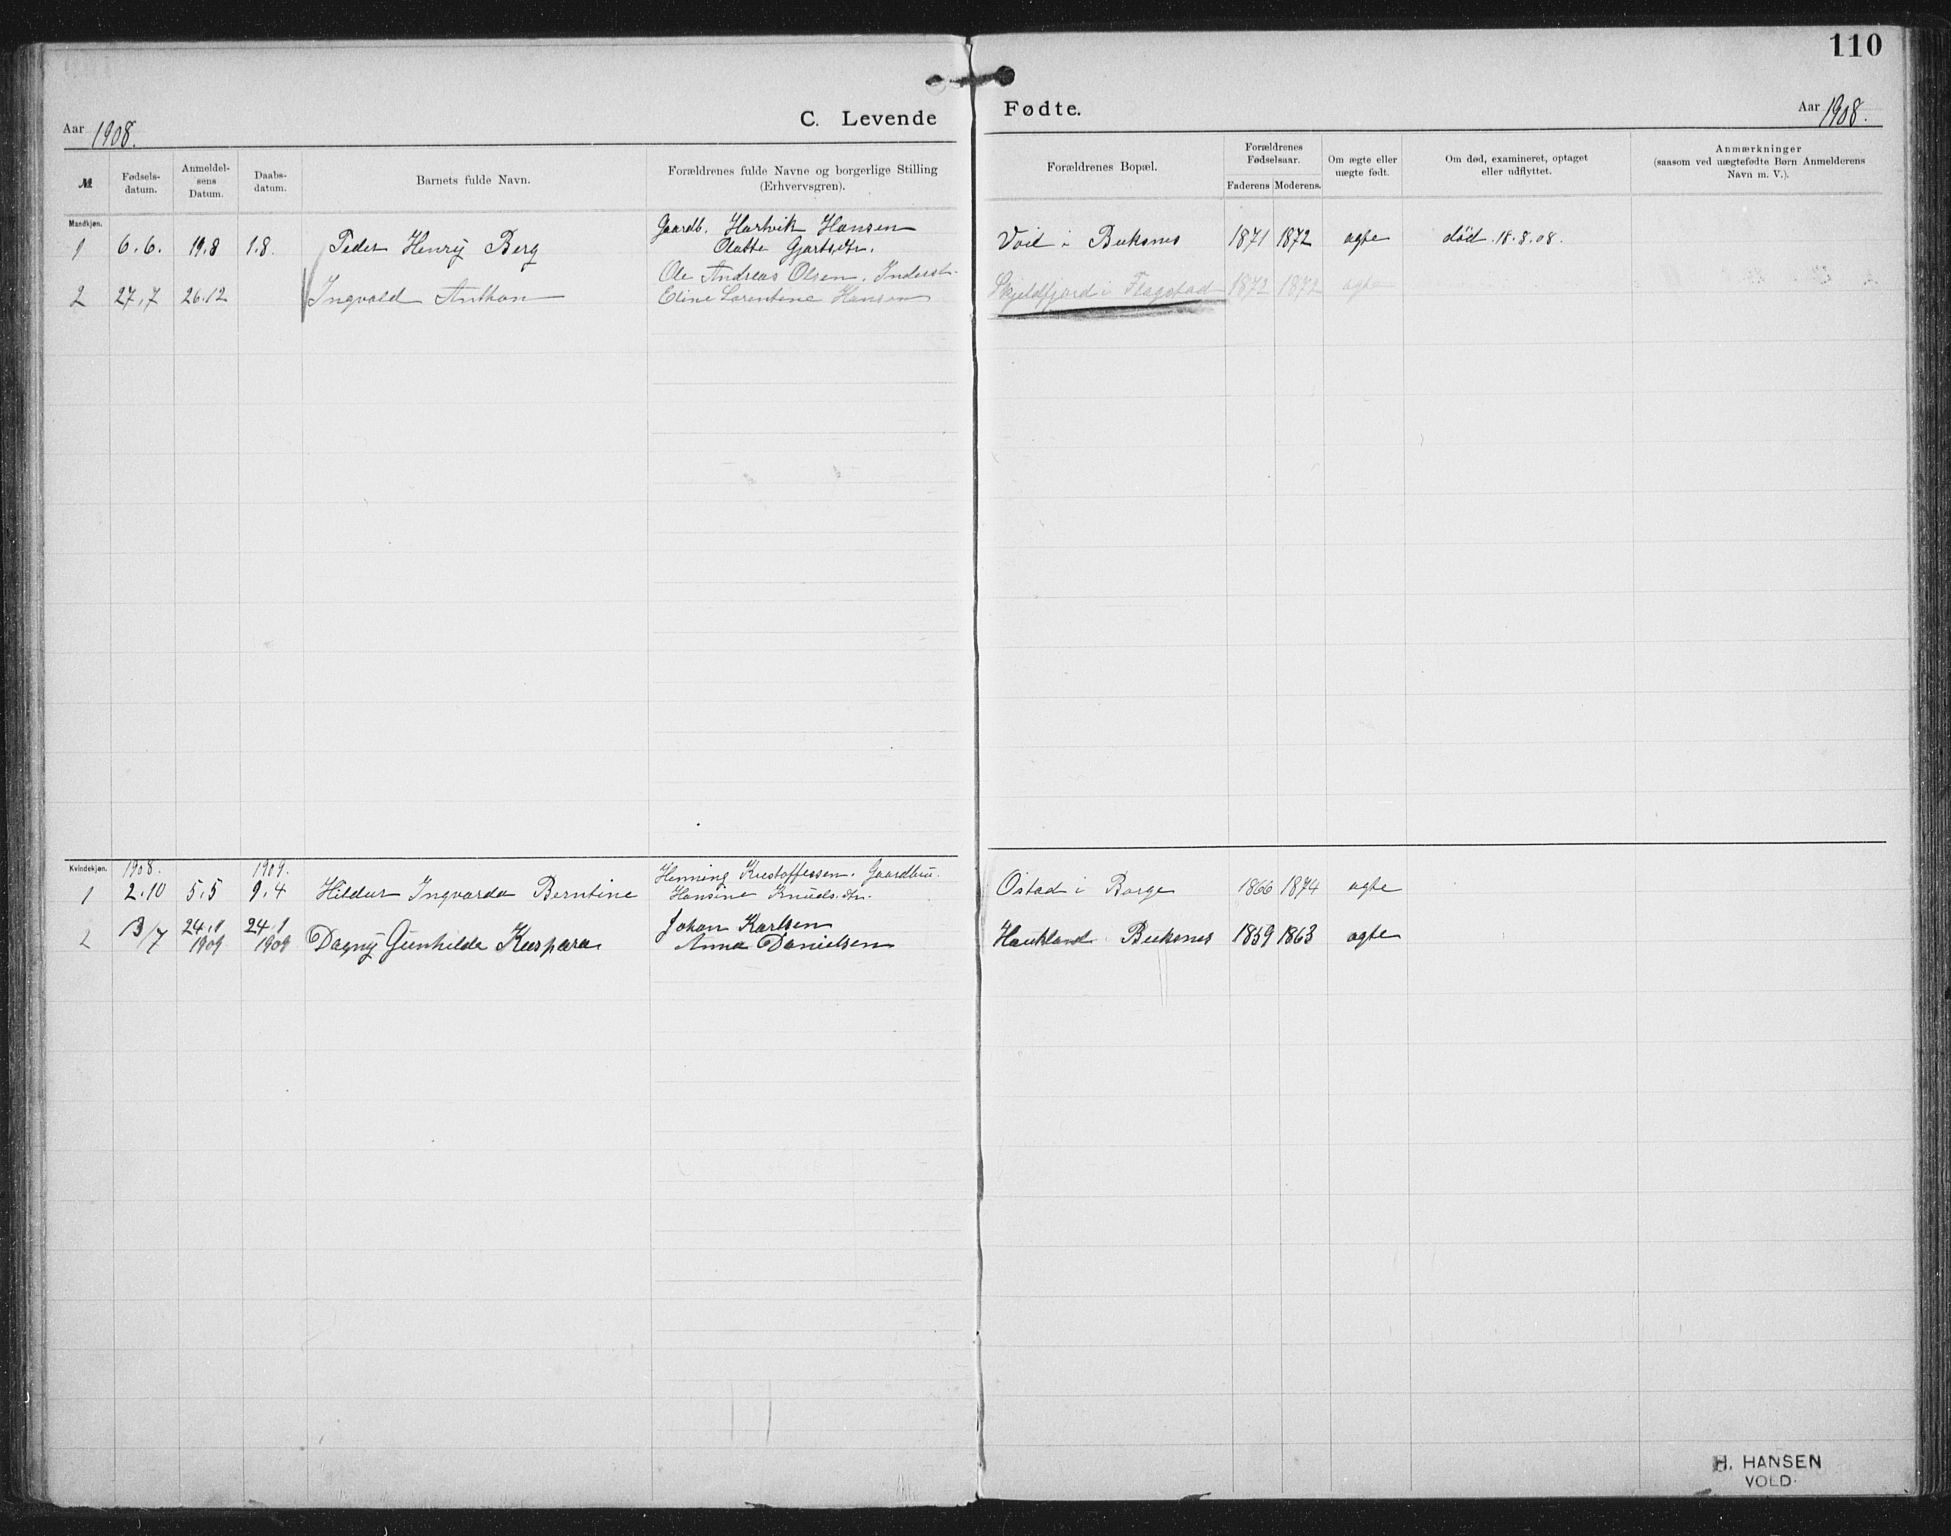 110
Aar 1908.
C. Levende Fødte.
Aar 1908.
№
Fødsels-datum.
Anmeldel-sens Datum.
Daabs-datum.
Barnets fulde Navn.
Forældrenes fulde Navne og borgerlige Stilling (Erhvervsgren).
Forældrenes Bopæl.
Forældrenes Fødselsaar.
Faderens Moderens.
Om ægte eller uægte født.
Om død, examineret, optaget eller udflyttet.
Anmærkninger
(saasom ved uægtefødte Børn Anmelderens Navn m. V.).
Mandkjøn.
Gaardb. Hartvik Hansen
1 6.6. 19.8 1.8. Peder Henry Berg Olatte Gjærtsdtr. Voie i Buksnes 1871 1872 ægte død 18.8.08.
Ole Andreas Olsen, Inderst.
2 27.7 26.12 Ingvald Anthon Eline Lorentine Hansen Skjeldfjord i Flagstad 1872 1872 ægte
Kvindekjøn. 1908. 1909. Henning Kristoffersen. Gaardbru.
1 2.10 5.5 9.4 Hildur Ingvarda Berntine Hansine Knudsdtr. Ostad i Borge 1866 1874 ægte
13/7 24.1 24.1 Johan Karlsen
2 1909 1909 Dagny Gunhilda Kaspara Anna Danielsen Haukland Buksnes 1859 1863 ægte
H. HANSEN
VOLD.